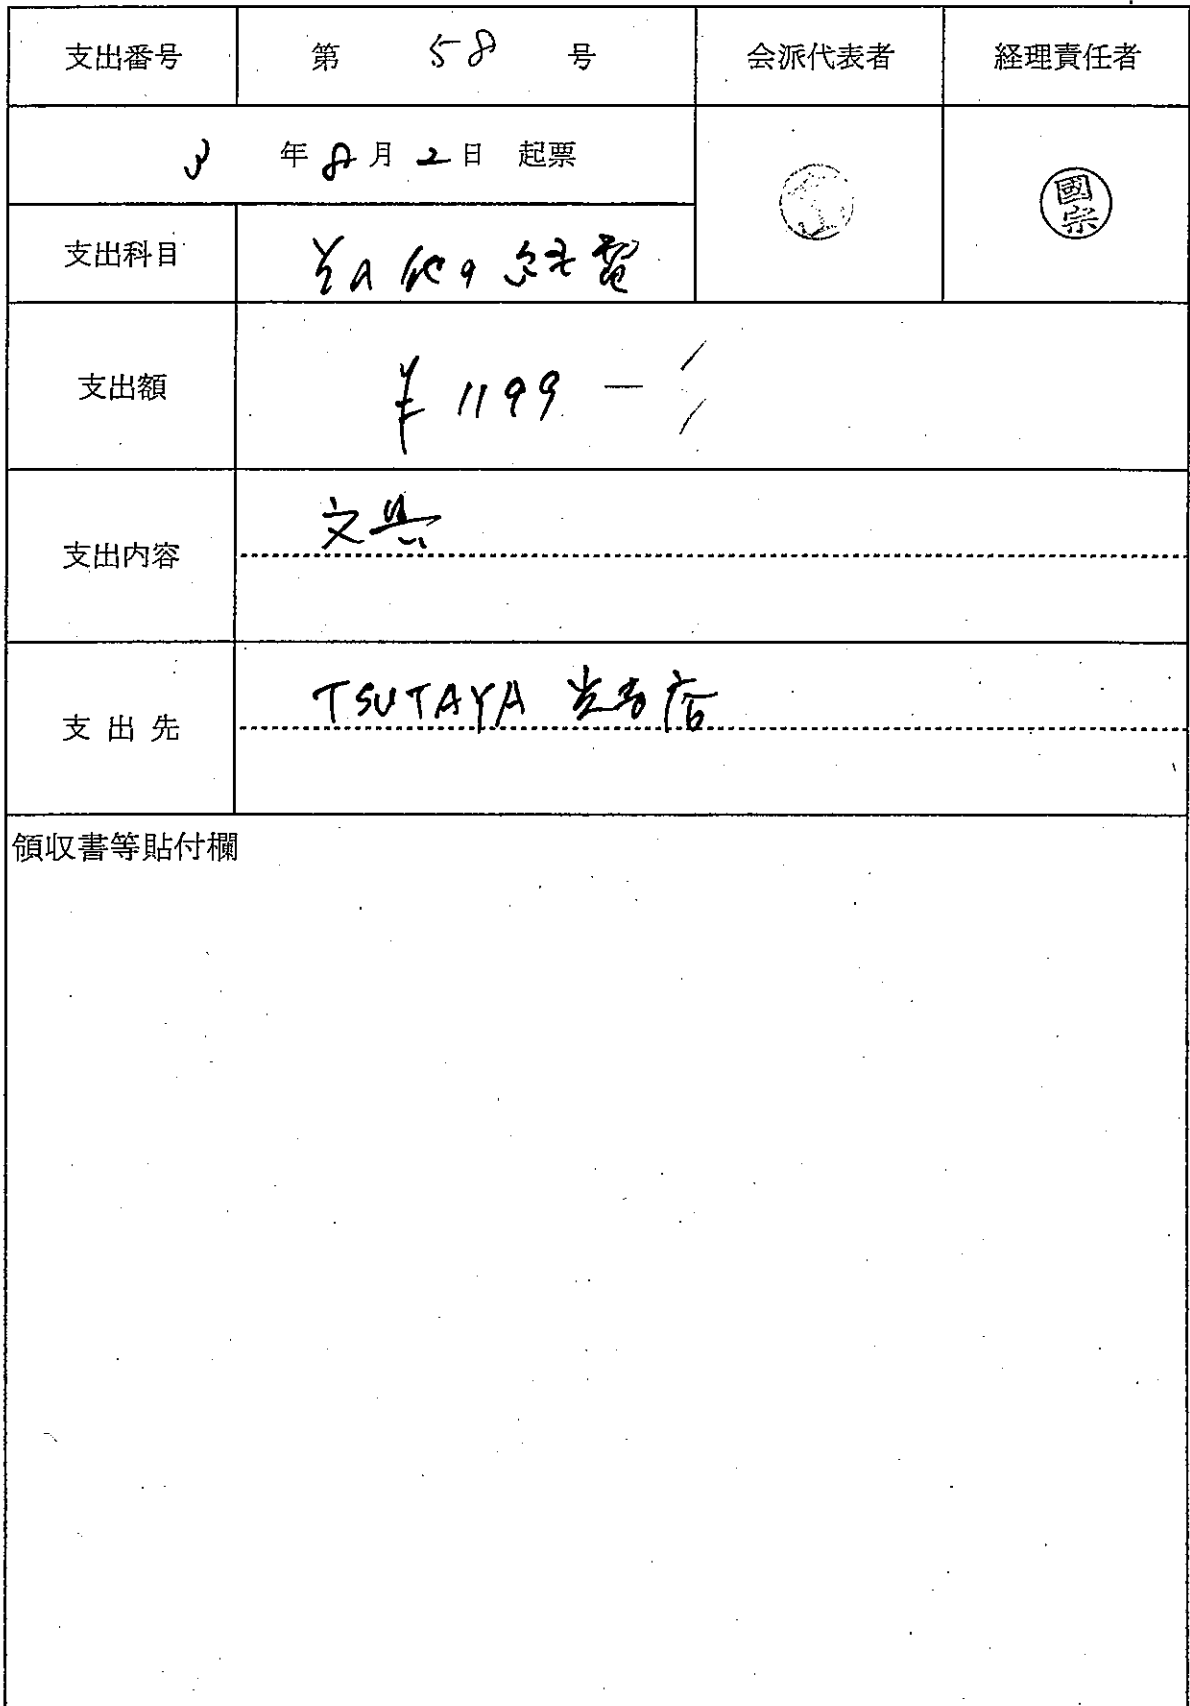 支出番号 第 58 号 会派代表者 経理責任者
3 年 8 月 2 日 起票
國宗
支出科目 その他の経費
支出額 ¥1199-
支出内容 文具
支出先 TSUTAYA 店
領収書等貼付欄